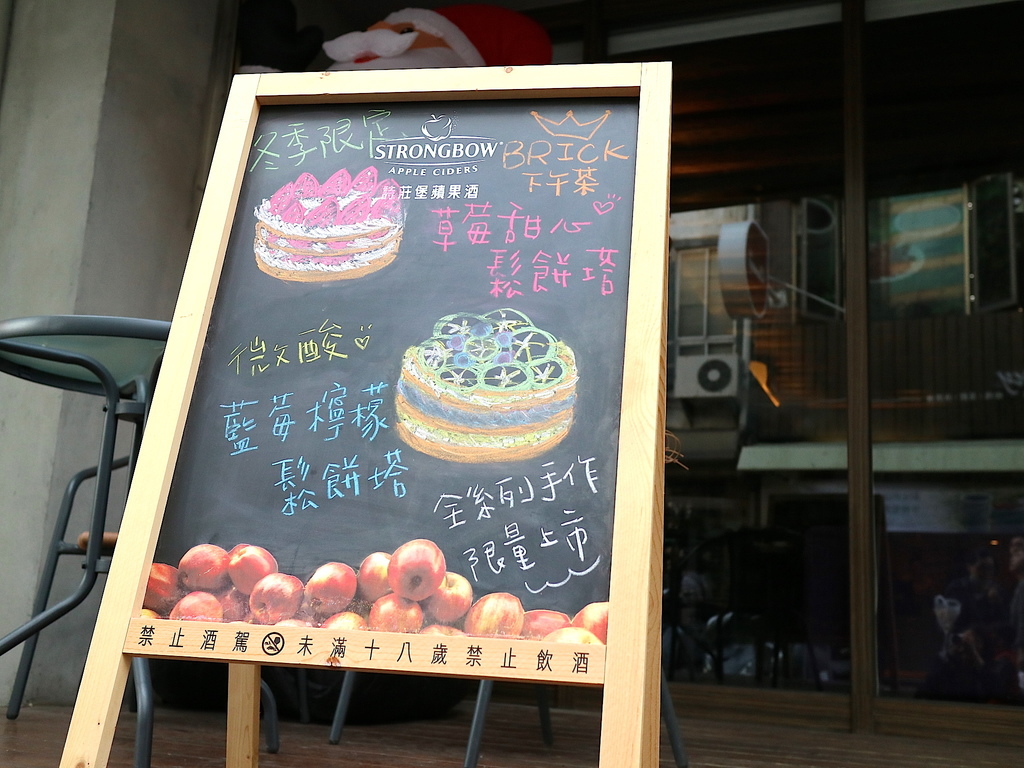 冬季限定
STRONGBOW®
APPLE CIDERS
詩莊堡蘋果酒
BRICK
下午茶
草莓甜心
鬆餅塔
微微酸
藍莓檸檬
鬆餅塔
全系列手作
限量上市
禁止酒駕 未滿十八歲禁止飲酒